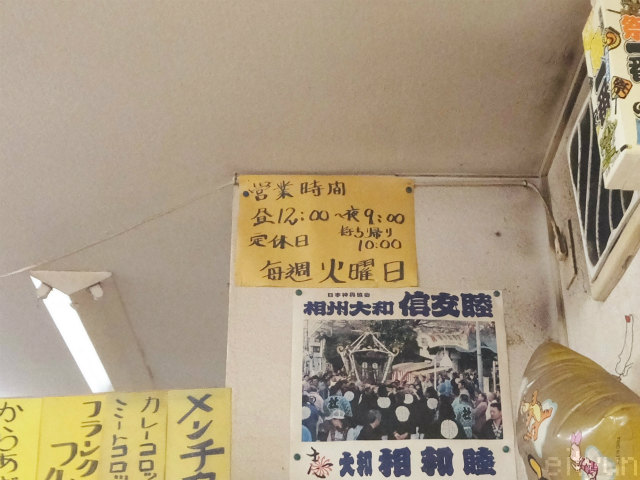 営業時間
昼12:00〜夜9:00
定休日
持ち帰り
10:00
毎週火曜日
日本神輿協会
相州大和 信友睦
大和 相和睦
メンチカ
カレーコロッ
ミートコロッ
フランク
フル
からあ
祭